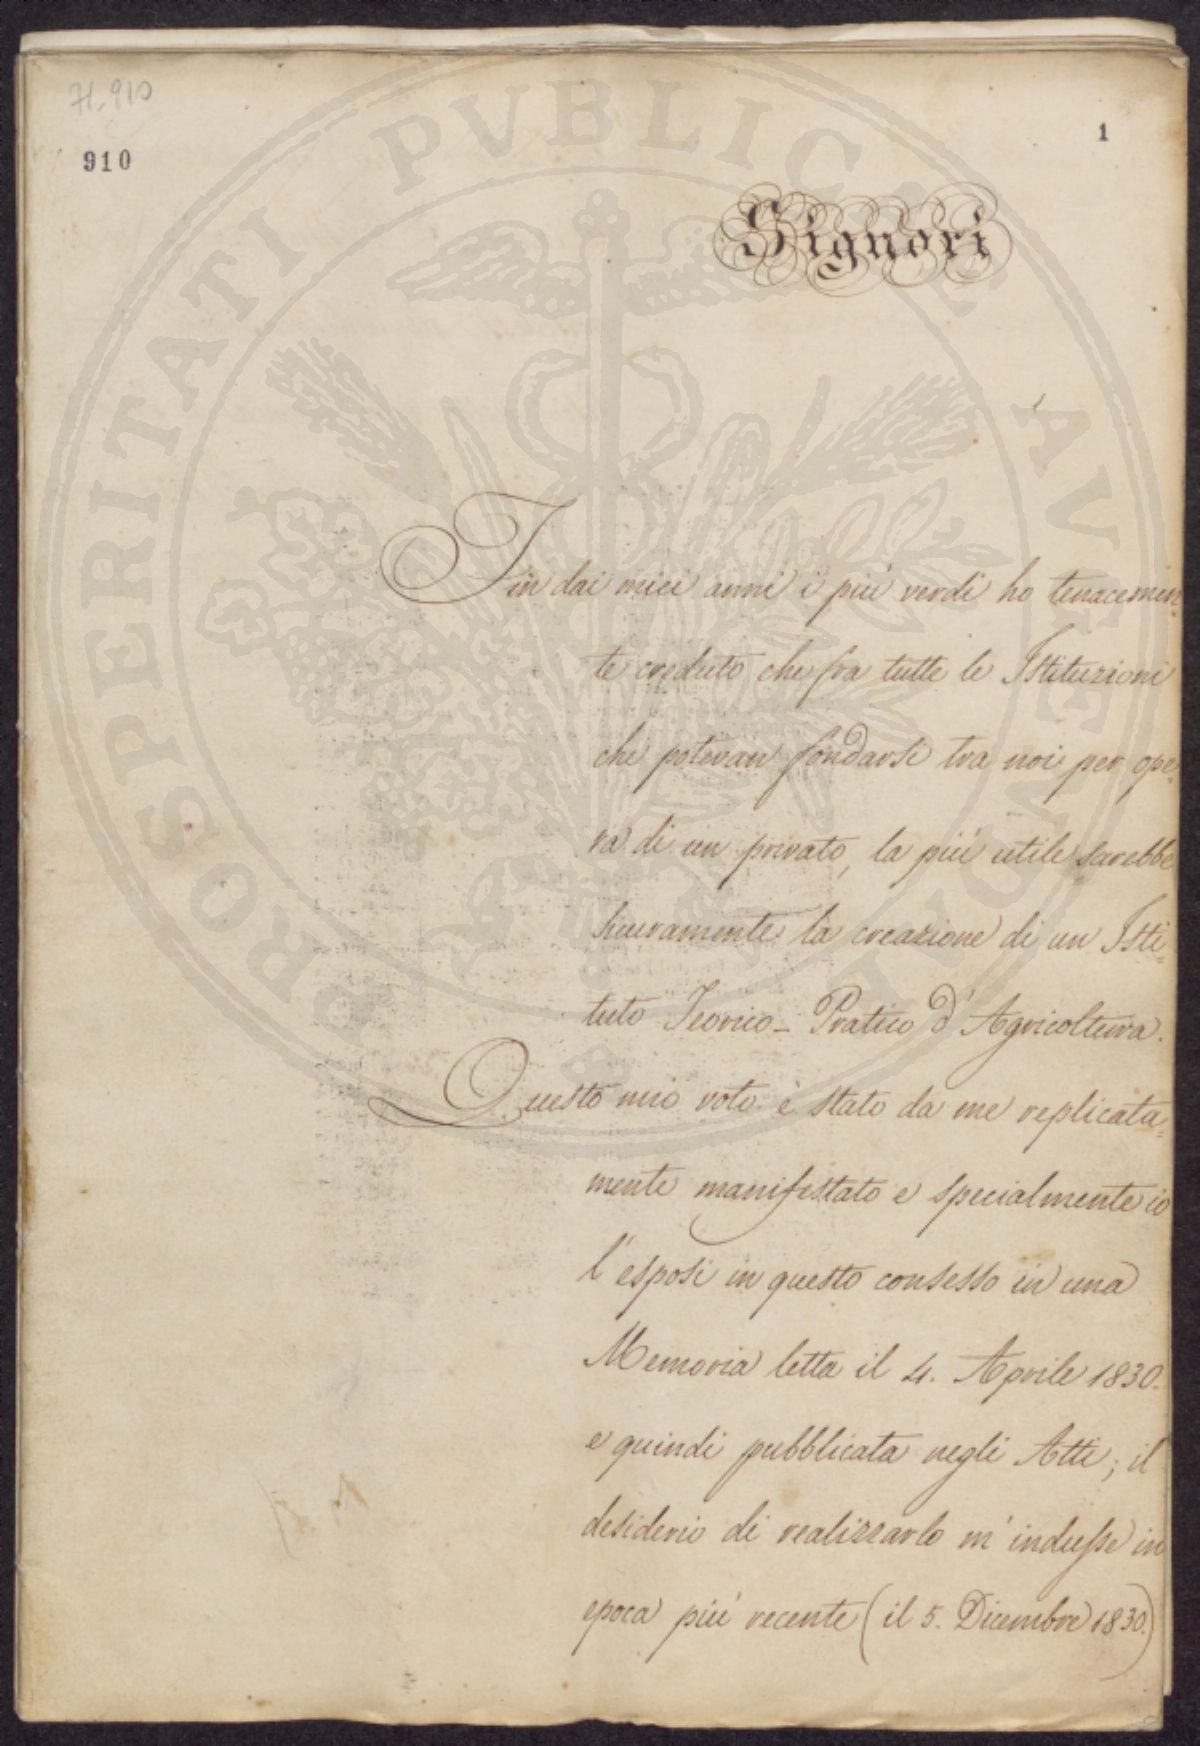 71.910
910
1
Signori
Fin dai miei anni i più verdi ho tenacemen=
te creduto che fra tutte le Istituzioni
che potevan fondarsi tra noi per ope=
ra di un privato, la più utile sarebbe
sicuramente la creazione di un Isti=
tuto Teorico-Pratico d'Agricoltura.
Questo mio voto è stato da me replicata=
mente manifestato e specialmente io
l'esposi in questo consesso in una
Memoria letta il 4. Aprile 1830.
e quindi pubblicata negli Atti; il
desiderio di realizzarlo m'indusse in
epoca più recente (il 5. Dicembre 1830.)
PROSPERITATI PVBLICAE AVGENDAE